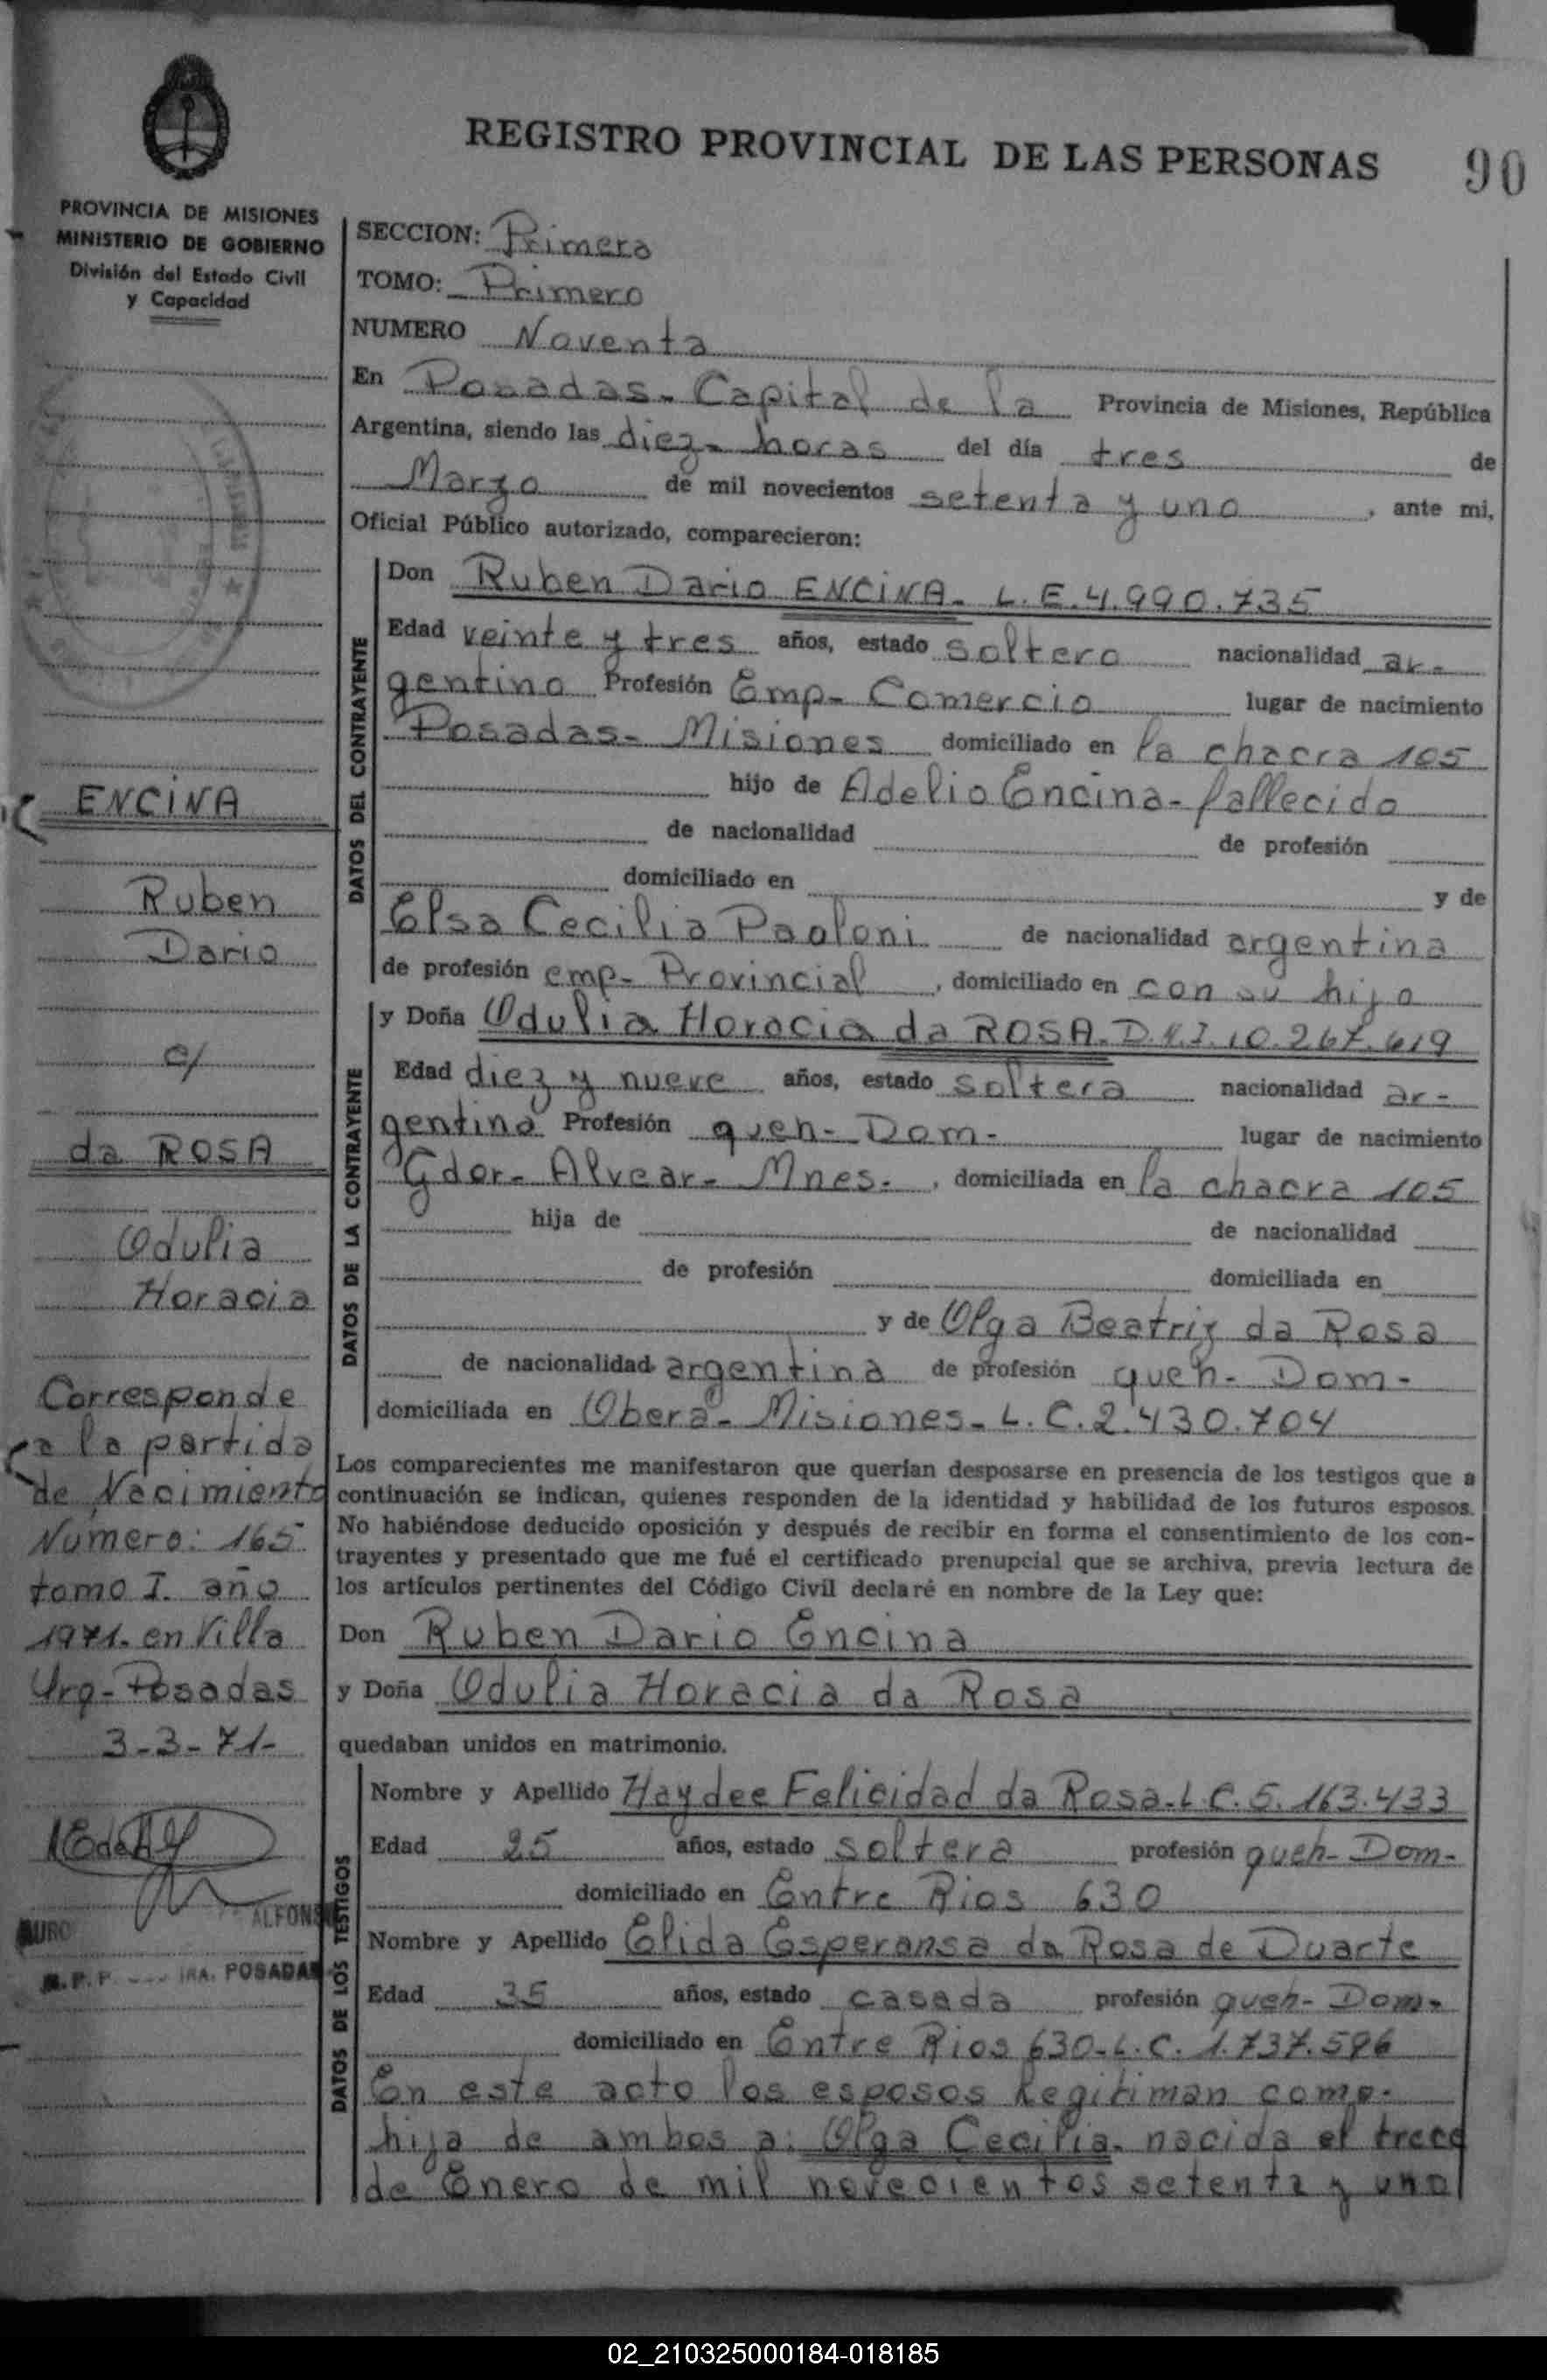 REGISTRO PROVINCIAL DE LAS PERSONAS
90
PROVINCIA DE MISIONES
MINISTERIO DE GOBIERNO
División del Estado Civil
y Capacidad
ENCINA
Ruben
Dario
c/
da ROSA
Odulia
Horacia
Corresponde
a la partida
de Nacimiento
Número: 165.
tomo I. año
1971. en Villa
Urq-Posadas
3-3-71-
ALFONS
POSADAS
SECCION: Primera
TOMO: Primero
NUMERO Noventa
En Posadas- Capital de la Provincia de Misiones, República
Argentina, siendo las diez- horas del día tres de
Marzo de mil novecientos setenta y uno, ante mi,
Oficial Público autorizado, comparecieron:
DATOS DEL CONTRAYENTE
Don Ruben Dario ENCINA- L.E.4.990.735
Edad veinte y tres años, estado soltero nacionalidad ar-
gentino Profesión Emp- Comercio lugar de nacimiento
Posadas- Misiones domiciliado en la chacra 105
hijo de Adelio Encina- fallecido
de nacionalidad de profesión
domiciliado en y de
Elsa Cecilia Paoloni de nacionalidad argentina
de profesión emp- Provincial, domiciliado en con su hijo
DATOS DE LA CONTRAYENTE
y Doña Odulia Horacia da ROSA- D.N.I.10.267.619
Edad diez y nueve años, estado soltera nacionalidad ar-
gentina Profesión queh- Dom- lugar de nacimiento
Gdor- Alvear- Mnes-, domiciliada en la chacra 105
hija de de nacionalidad
de profesión domiciliada en
y de Olga Beatriz da Rosa
de nacionalidad argentina de profesión queh- Dom-
domiciliada en Oberá- Misiones- L.C.2.430.704
Los comparecientes me manifestaron que querían desposarse en presencia de los testigos que a
continuación se indican, quienes responden de la identidad y habilidad de los futuros esposos.
No habiéndose deducido oposición y después de recibir en forma el consentimiento de los con-
trayentes y presentado que me fué el certificado prenupcial que se archiva, previa lectura de
los artículos pertinentes del Código Civil declaré en nombre de la Ley que:
Don Ruben Dario Encina
y Doña Odulia Horacia da Rosa
quedaban unidos en matrimonio.
DATOS DE LOS TESTIGOS
Nombre y Apellido Haydee Felicidad da Rosa-L.C.5.163.433
Edad 25 años, estado soltera profesión queh- Dom-
domiciliado en Entre Rios 630
Nombre y Apellido Elida Esperansa da Rosa de Duarte
Edad 35 años, estado casada profesión queh- Dom-
domiciliado en Entre Rios 630-L.C. 1.737.596
En este acto los esposos Legitiman como-
hija de ambos a: Olga Cecilia- nacida el trece
de Enero de mil novecientos setenta y uno
02_210325000184-018185